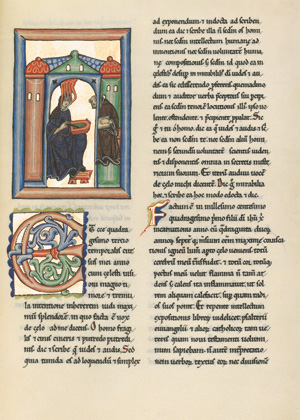 Et ecce qua
gesimo tercio
temporalis cur
sus mei anno
cum celesti visi
oni magno ti
more & tremu
la intentione inhererem vidi maxi
splendore in quo facta est vox
de celo ad me dicens O homo fragi
lis & cinis cineris & putredo putredi
nis dic & scribe que vides & audis Sed
quia timida es ad loquendum & simplex
ad exponendum & indocta ad scriben
dum ea dic & scribe illa non secundum os homi
nis nec secundum intellectum humane ad
inventionis nec secundum voluntatem humane
compositionis sed secundum id quod ea in
celestibus desuper in mirabilibus dei vides & au
dis ea sic edisserendo proferens quemadmo
dum & auditor verba preceptoris sui perci
piens ea secundum tenorem locutionis illius ipso vo
lente ostendente & precipiente propalat Sic
& tu o homo dic ea que vides & audis & scri
be ea non secundum te nec secundum alium homi
nem sed secundum voluntatem scientis viden
tis & disponentis omnia in secretis miste
riorum suorum Et iterum audivi vocem
de celo michi dicentem Dic mirabilia
hec & scribe ea hoc modo edocta & dic
Factum est in millesimo centesimo
quadragesimo primo filii dei
incarnationis anno cum quadraginta duorum
annorum septemque mensium essem maxime corusca
tionis igneum lumen aperto celo veniens totum
cerebrum meum transfudit & totum cor totumque
pectus meum velut flamma non tamen ar
dens sed calens ita inflammavit ut sol
rem aliquam calefacit super quam radi
os suos ponit Et repente intellectum
expositionis librorum videlicet psalterii
evangelii & aliorum catholicorum tam ve
teris quam novi testamenti volumi
num sapiebam non autem interpretatio
nem verborum textus eorum nec divisionem